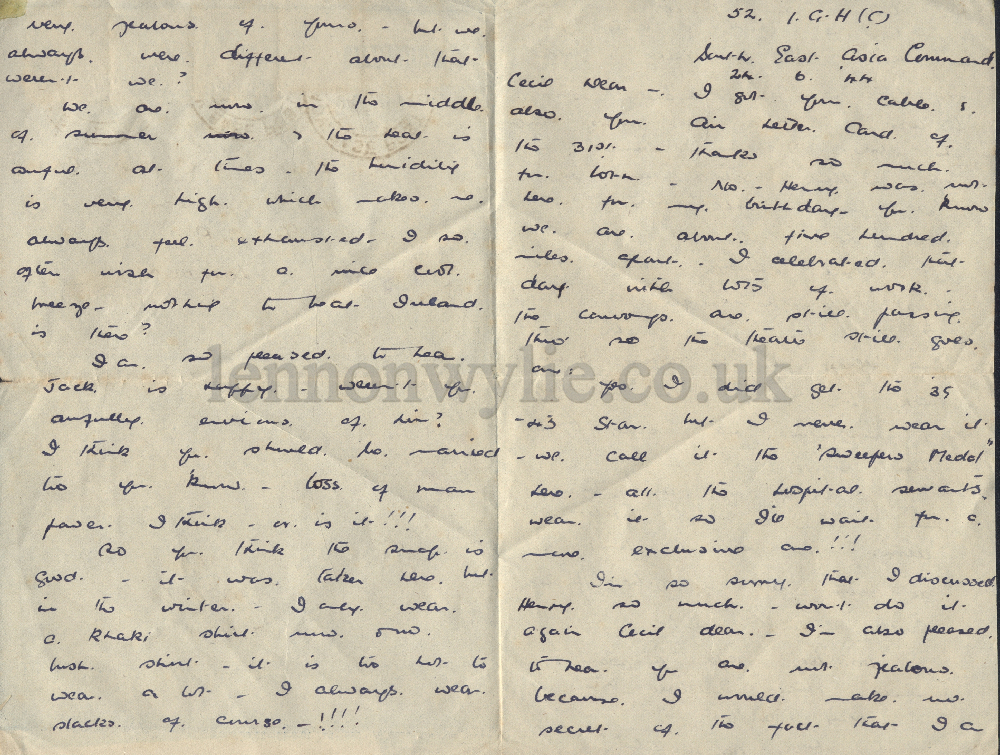 52. I.G.H (C)
South East Asia Command.
24. 6. 44
Cecil Dear -. I got your cable &
also your Air Letter Card of
the 31st. - Thanks so much
for both. - No. - Henry was not
here for my birthday - you know
we are about five hundred
miles apart. - I celebrated that
day with lots of work. -
The convoys are still passing
thro so the theatre still goes
on.
Yes I did get the 39
-43 Star. but I never wear it
- we call it the "Sweepers Medal"
here. - all the hospital servants
wear it so I'll wait for a
more exclusive one.!!!
I'm so sorry that I discussed
Henry so much. - won't do it
again Cecil dear. - I'm also pleased
to hear you are not jealous
because I would make no
secret of the fact that I am
very jealous of yours. - but we
always were different about that
weren't we?
We are now in the middle
of summer & the heat is
awful at times - the humidity
is very high which makes me
always feel exhausted - I so
often wish for a nice cool
breeze - nothing to beat Ireland
is there?
I am so pleased to hear
Jack is happy. - weren't you
awfully envious of him?
I think you should be married
too you know. - loss of man
power I think - or is it!!!
So you think the snap is
good. - it was taken here. but
in the winter. - I only wear
a khaki shirt now
bush shirt - it is too hot to
wear a lot - I always wear
slacks of course. -!!!!
lennonwylie.co.uk